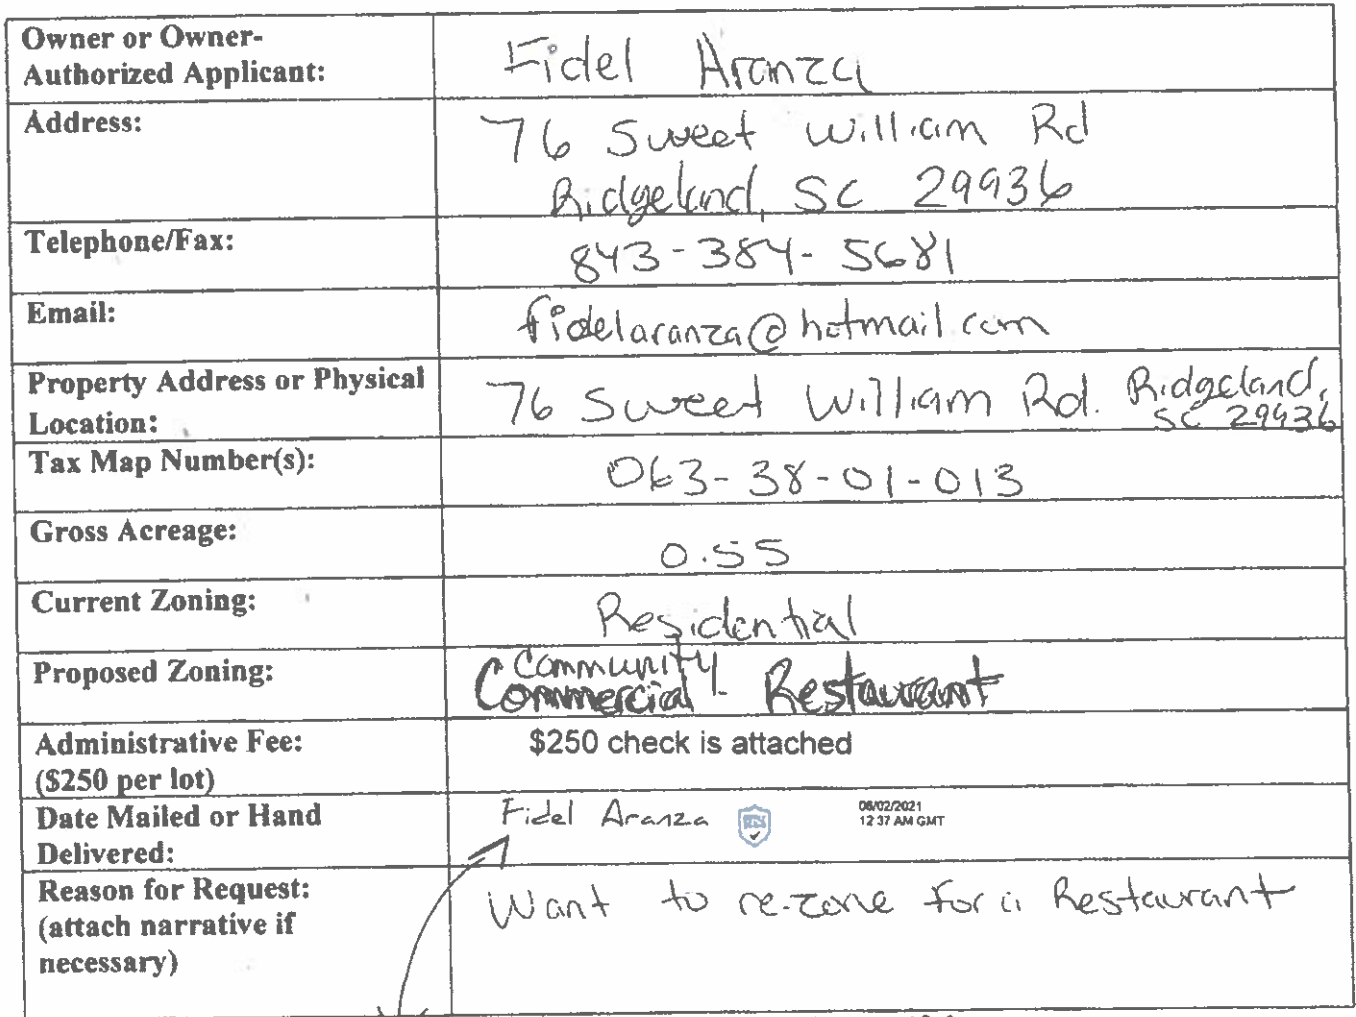 Owner or Owner-
Authorized Applicant:
Fidel Aranza
Address:
76 Sweet William Rd
Ridgeland, SC 29936
Telephone/Fax:
843-384-5681
Email:
fidelaranza@hotmail.com
Property Address or Physical
Location:
76 Sweet William Rd. Ridgeland,
SC 29936
Tax Map Number(s):
063-38-01-013
Gross Acreage:
0.55
Current Zoning:
Residential
Proposed Zoning:
Community
Commercial - Restaurant
Administrative Fee:
($250 per lot)
$250 check is attached
Date Mailed or Hand
Delivered:
Fidel Aranza
06/02/2021
12 37 AM GMT
Reason for Request:
(attach narrative if
necessary)
Want to re-zone for a Restaurant